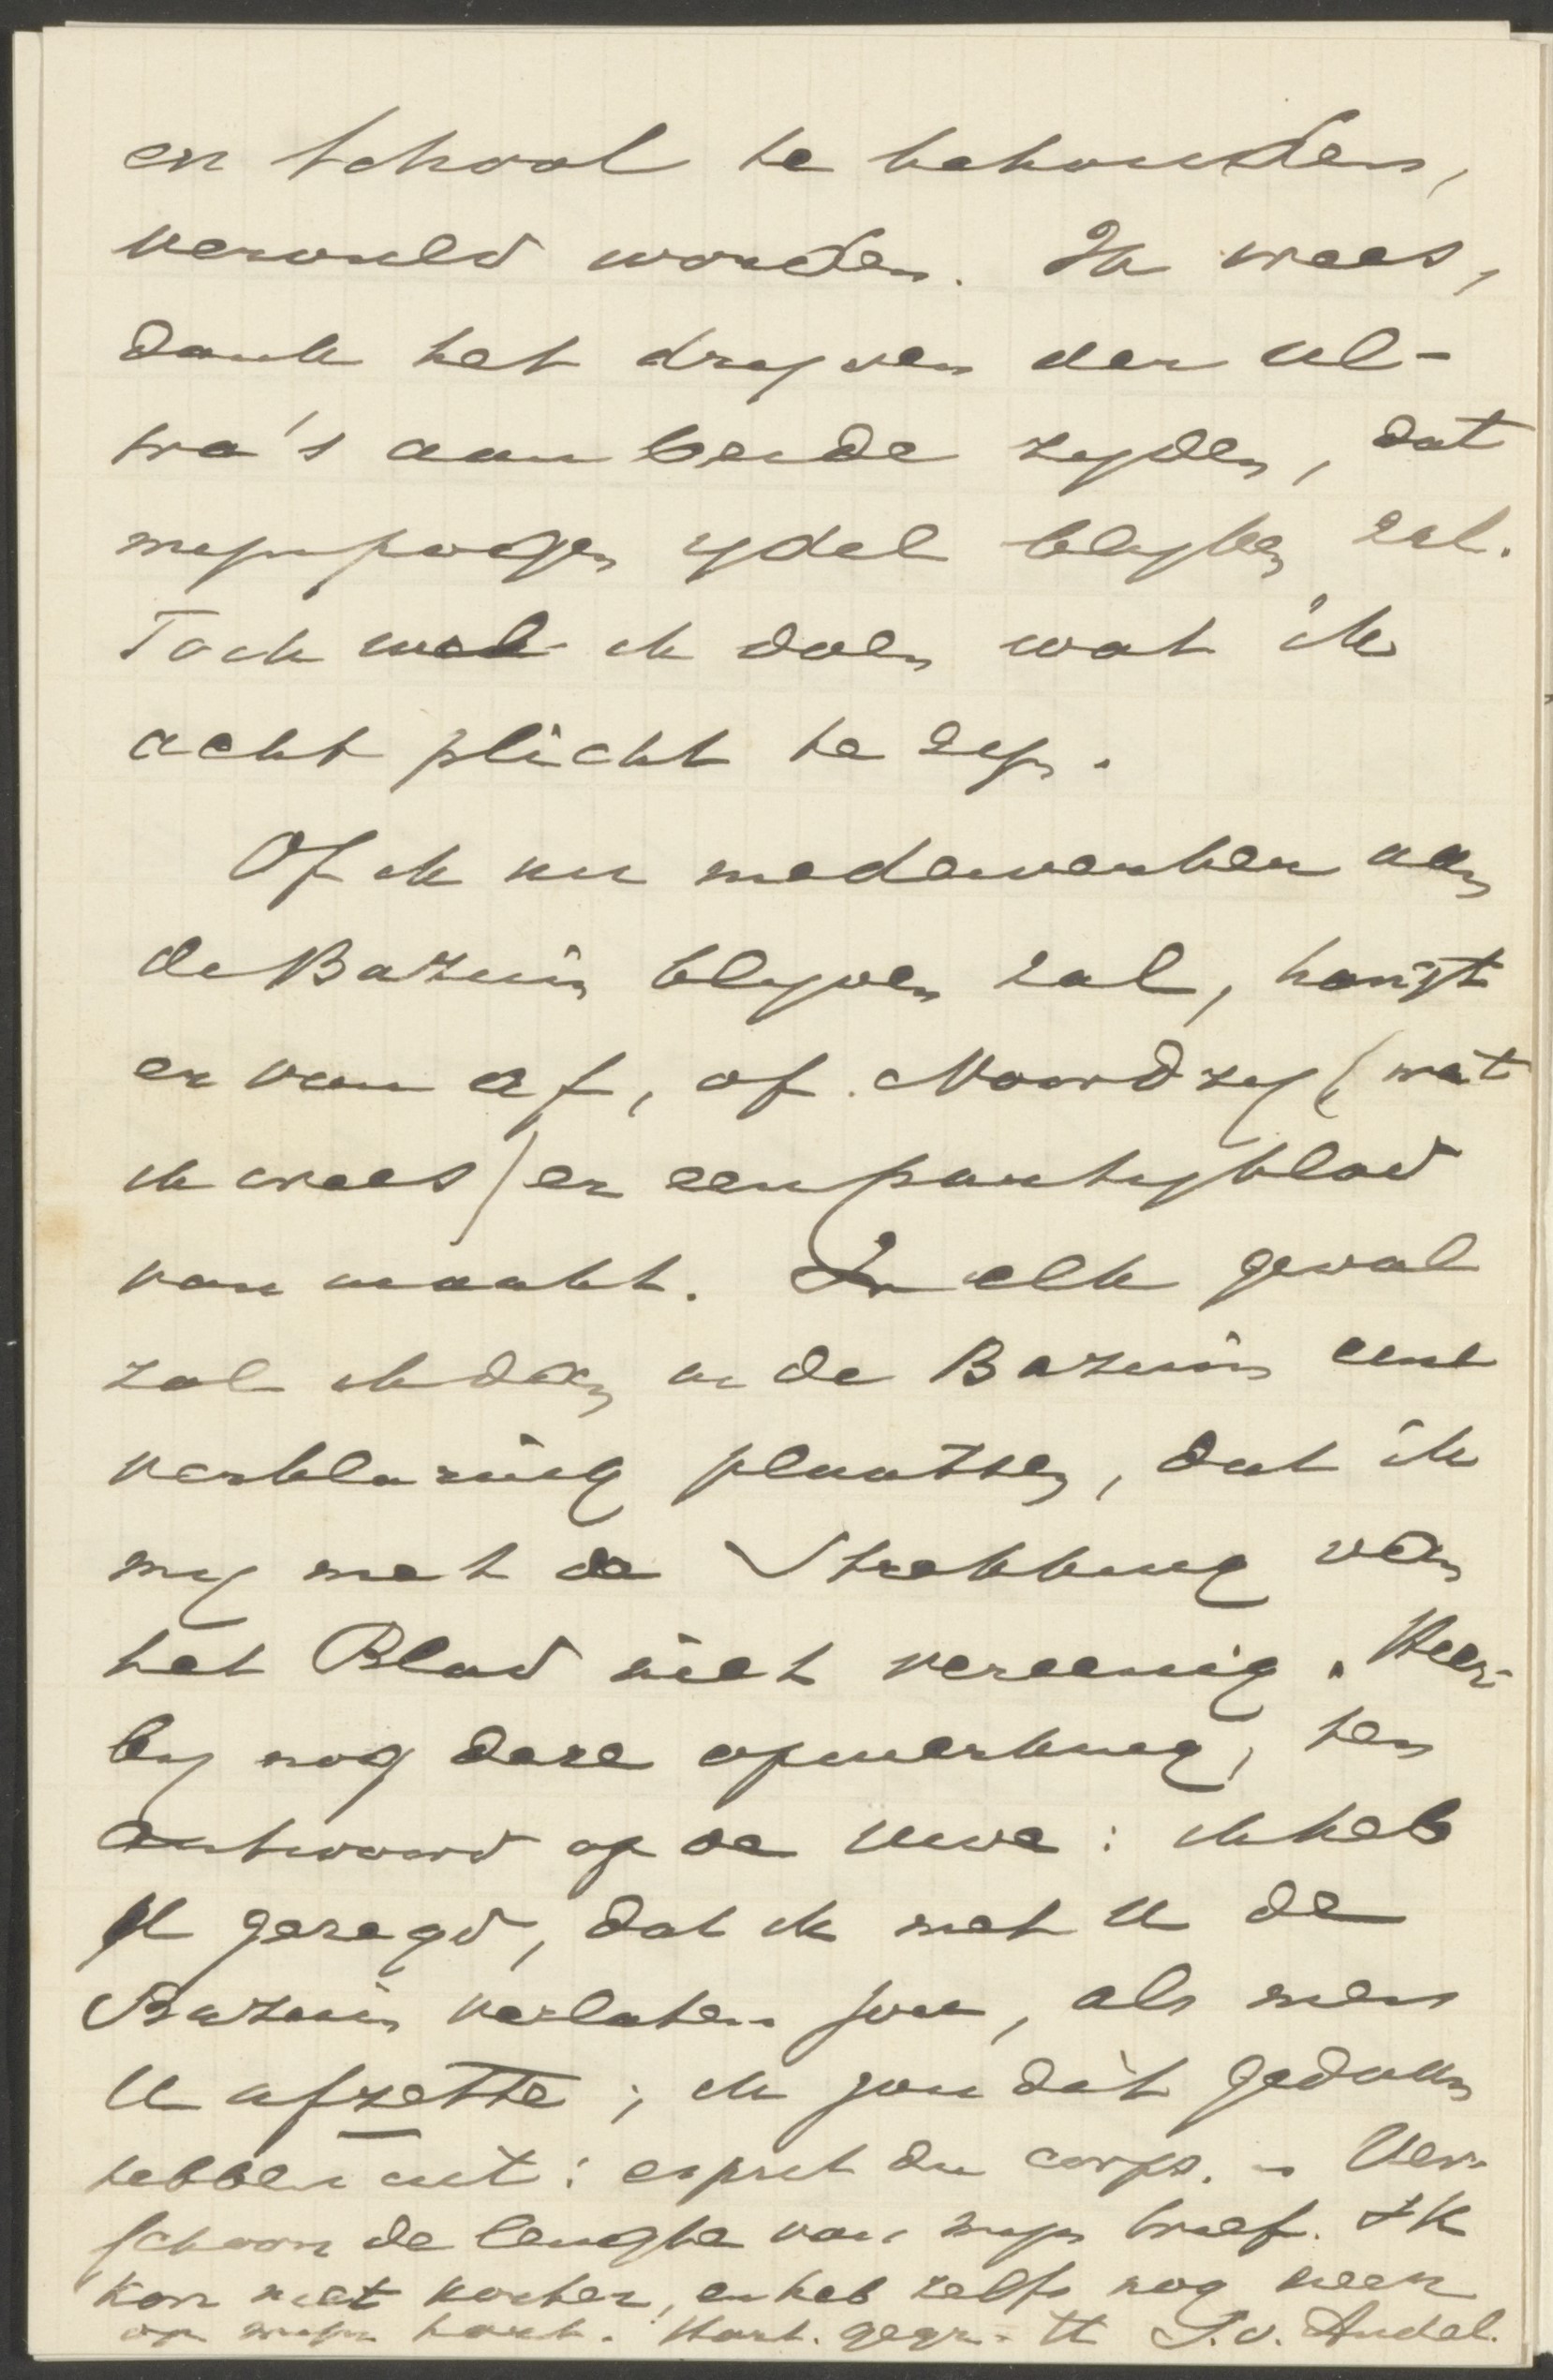 en school te behouden,
vervuld worden. Ik vrees,
dank het dryven der ul-
tra's aan beide zyden, dat
myn pogen ydel blyken zal.
Toch wil ik doen wat ik
acht plicht te zyn.
Of ik nu medewerker aan
de Bazuin blyven zal, hangt
er van af, of Noordzy (wat
ik vrees) er een partyblad
van maakt. In elk geval
zal ik dan in de Bazuin eene
verklaring plaatsen, dat ik
my met de Strekking van
het Blad niet vereenig. Hier-
by nog deze opmerking, ten
antwoord op de Uwe: ik heb
U gezegd, dat ik met U de
Bazuin verlaten zou, als men
U afzette; ik zou dit gedaan
hebben uit: esprit du corps. - Ver-
schoon de lengte van myn brief. Ik
kon niet korter, en heb zelfs nog meer
op myn hart. Hart. gegr. tt J.v. Andel.